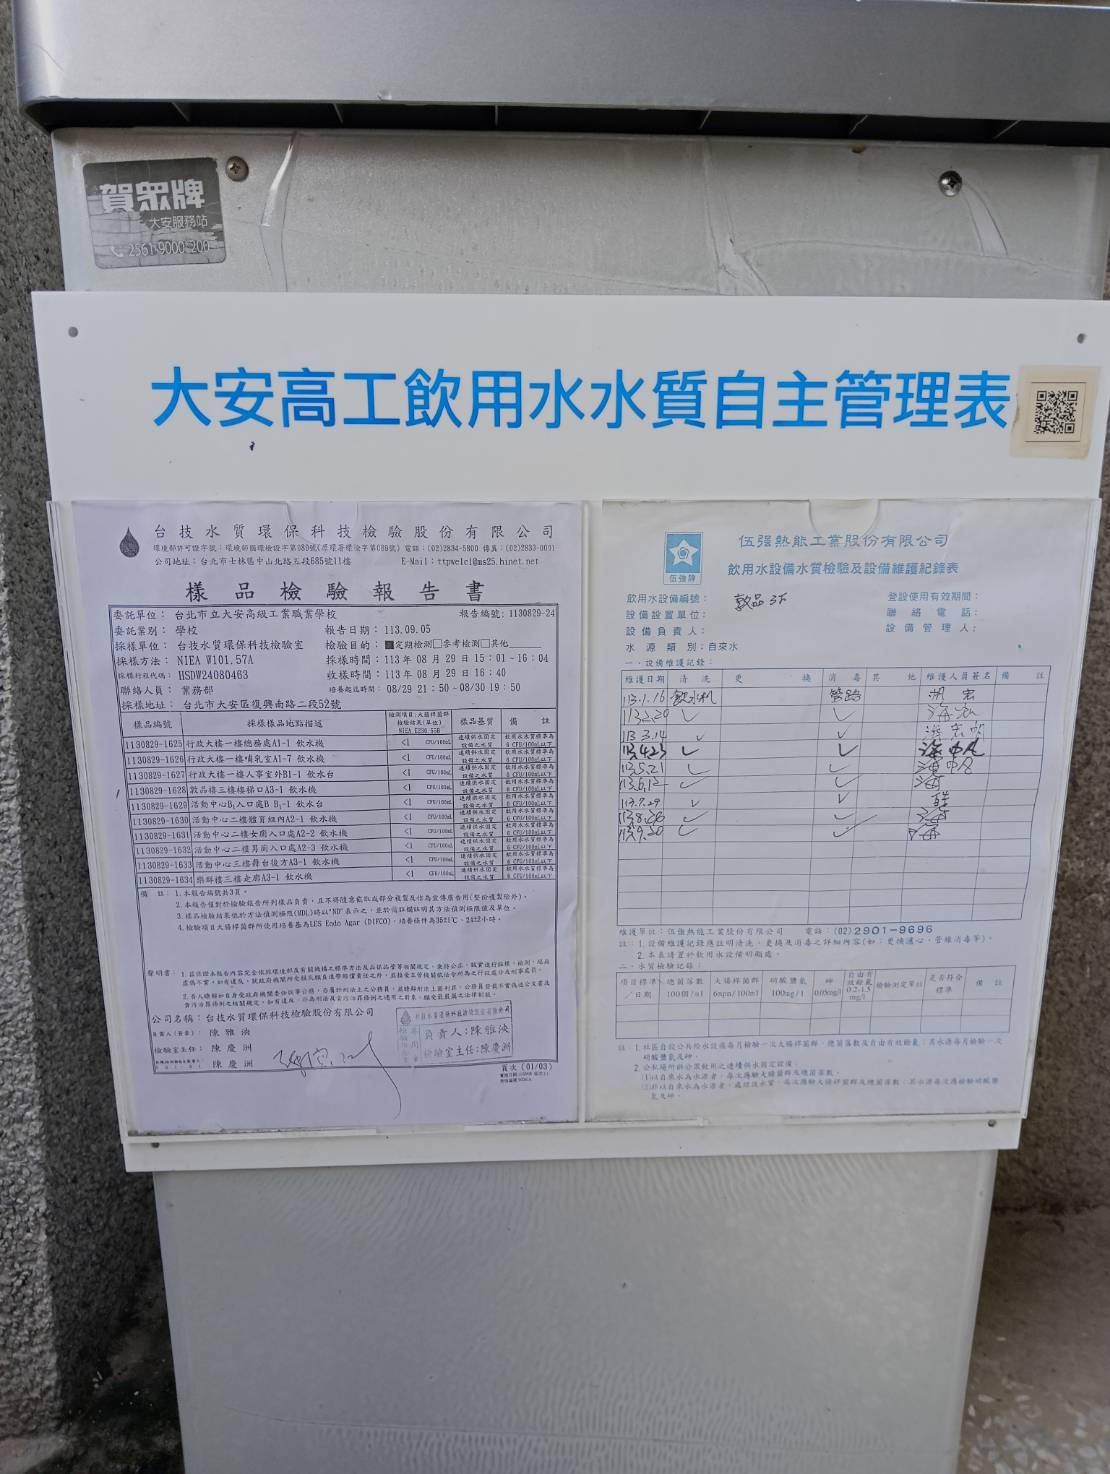 賀眾牌
大安服務站
2561-9000*200
大安高工飲用水水質自主管理表
台技水質環保科技檢驗股份有限公司
公司地址：台北市士林區中山北路五段685號11樓 E-Mail：ttpwelcl@ms25.hinet.net
樣品檢驗報告書
委託單位：台北市立大安高級工業職業學校 報告編號：1130829-24
委託業別：學校 報告日期：113.09.05
採樣單位：台技水質環保科技檢驗室 檢驗目的：■定期檢測□參考檢測□其他
採樣方法：NIEA W101.57A 採樣時間：113年08月29日15：01-16：04
採樣行程代碼：HSDW24080463 收樣時間：113年08月29日16：40
聯絡人員：業務部 培養起迄時間：08/29 21：50-08/30 19：50
採樣地址：台北市大安區復興南路二段52號
樣品編號 採樣樣品地點描述 樣品基質 備註
1130829-1625 行政大樓一樓總務處A1-1 飲水機 <1 CFU/100mL
1130829-1626 行政大樓一樓哺乳室A1-7 飲水機 <1 CFU/100mL
1130829-1627 行政大樓一樓人事室外B1-1 飲水台 <1 CFU/100mL
1130829-1628 敦品樓三樓樓梯口A3-1 飲水機 <1 CFU/100mL
1130829-1629 活動中心B1入口處B B1-1 飲水台 <1 CFU/100mL
1130829-1630 活動中心二樓體育組內A2-1 飲水機 <1 CFU/100mL
1130829-1631 活動中心二樓女廁入口處A2-2 飲水機 <1 CFU/100mL
1130829-1632 活動中心二樓男廁入口處A2-3 飲水機 <1 CFU/100mL
1130829-1633 活動中心三樓舞台後方A3-1 飲水機 <1 CFU/100mL
1130829-1634 樂群樓三樓走廊A3-1 飲水機 <1 CFU/100mL
備註：1.本報告編號共3頁。
2.本報告僅對於檢驗報告所列樣品負責，且不得隨意截取或部分複製及作為宣傳廣告用(整份複製除外)。
3.樣品檢驗結果低於方法偵測極限(MDL)時以"ND"表示之，並於備註欄註明其方法偵測極限值及單位。
4.檢驗項目大腸桿菌群所使用培養基為LES Endo Agar (DIFCO)，培養條件為35±1℃，24±2小時。
聲明書：
公司名稱：台技水質環保科技檢驗股份有限公司
負責人(簽章)：陳雅泱
檢驗室主任：陳慶洲
陳慶洲
負責人：陳雅泱
檢驗室主任：陳慶洲
頁次(01/03)
伍強牌
伍强熱能工業股份有限公司
飲用水設備水質檢驗及設備維護紀錄表
飲用水設備編號：敦品3F 登設使用有效期間：
設備設置單位： 聯絡電話：
設備負責人： 設備管理人：
水源類別：自來水
一、設備維護記錄：
維護日期 清洗 更換 消毒 其他 維護人員簽名 備註
113.1.16 飲水机 管路
113.2.20 ✓ ✓
113.3.14 ✓ ✓
113.4.23 ✓ ✓
113.5.21 ✓ ✓
113.6.12 ✓ ✓
113.7.29 ✓ ✓
113.8.26 ✓ ✓
113.9.20 ✓ ✓
維護單位：伍強熱能工業股份有限公司 電話：(02)2901-9696
註：1.設備維護記錄應註明清洗、更換及消毒之詳細內容(如：更換濾心、管線消毒等)。
2.本表請置於飲用水設備明顯處。
二、水質檢驗記錄：
項目標準/日期 總菌落數 100個/ml 大腸桿菌群 6mpn/100ml 硝酸鹽氮 10mg/l 砷 0.05mg/l 自由有效餘氯 0.2-1.5 mg/l 檢驗測定單位 是否符合標準 備註
註：1.社區自設公共給水設備每月檢驗一次大腸桿菌群、總菌落數及自由有效餘氯；其水源每月檢驗一次
硝酸鹽氮及砷。
2.公私場所供公眾飲用之連續供水固定設備。